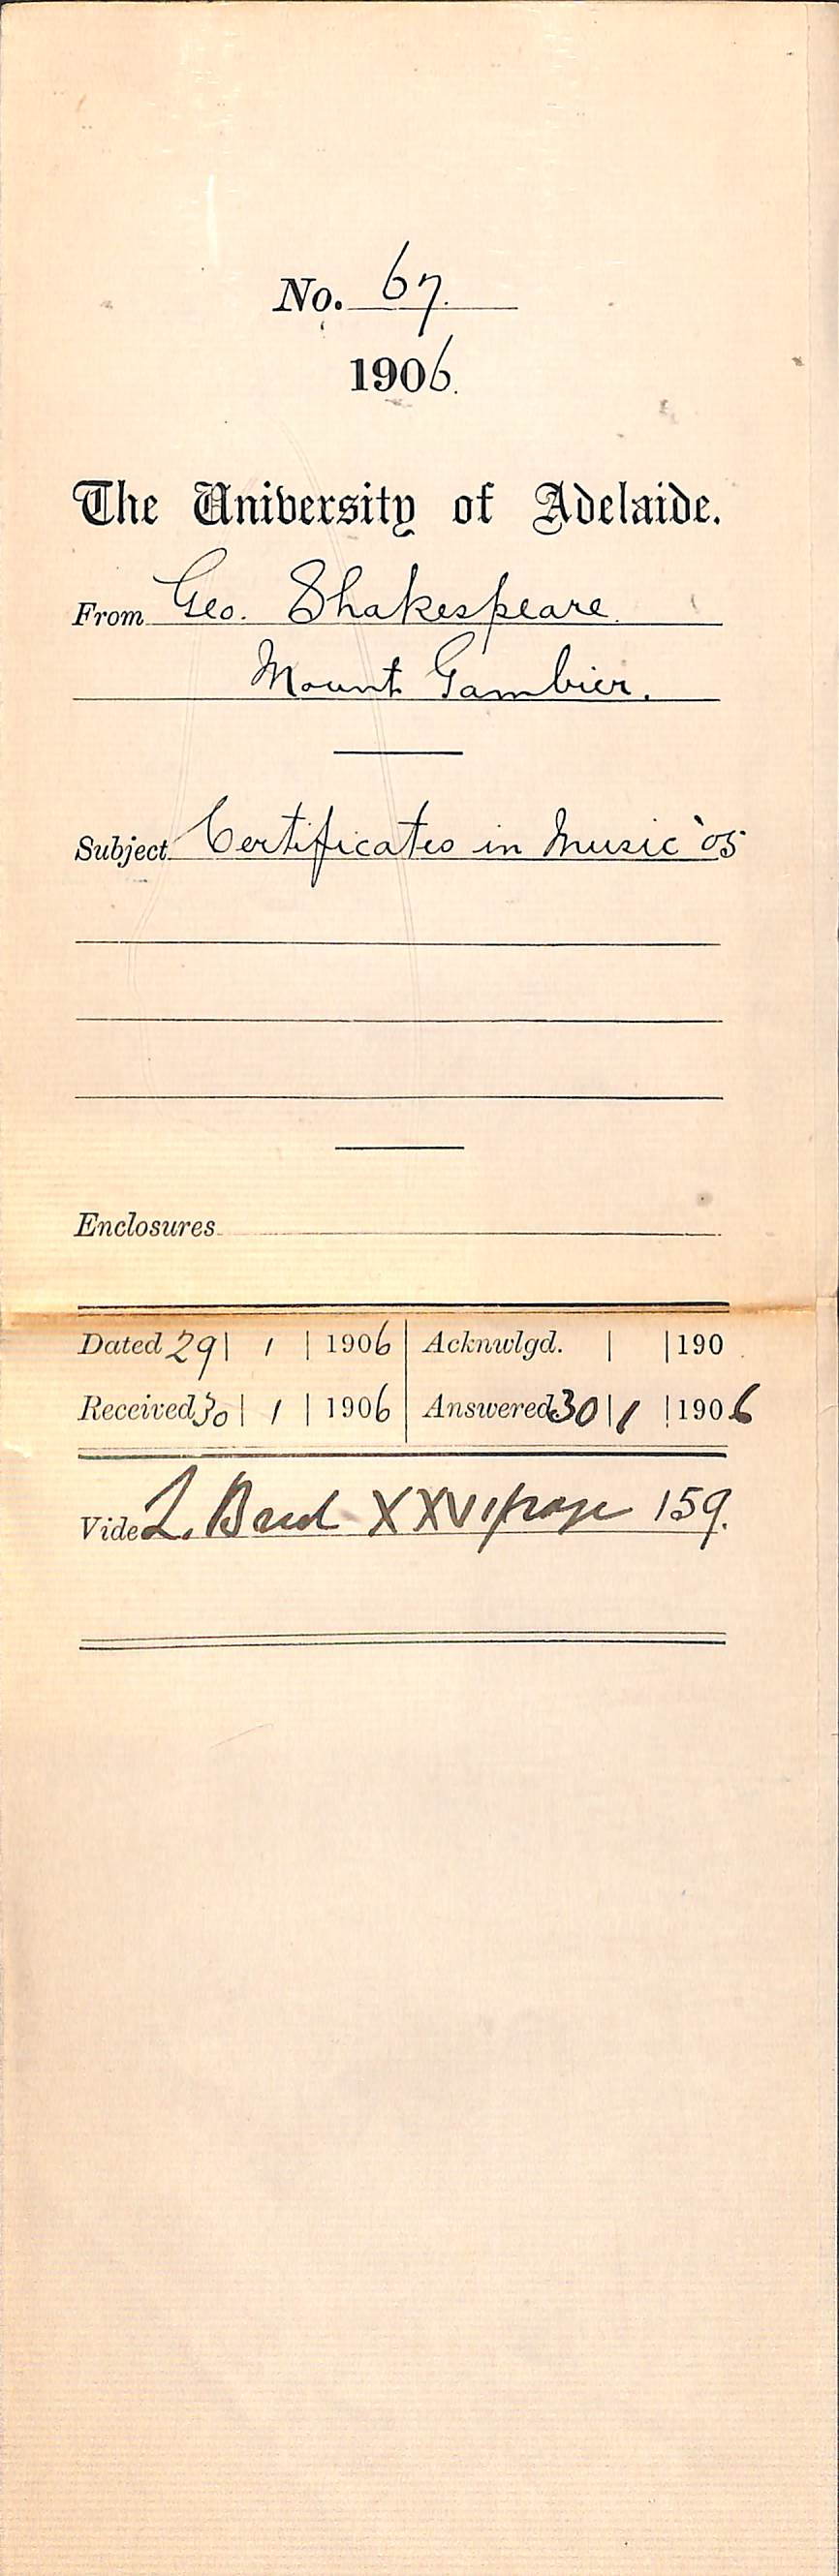 No. 67.
1906.
The University of Adelaide.
From Geo. Shakespeare.
Mount Gambier.
Subject Certificates in Music '05
Enclosures
Dated 29 | 1 | 1906 | Acknwlgd. | | 190
Received 30 | 1 | 1906 | Answered 30 | 1 | 1906
Vide L. XXVI page 159.